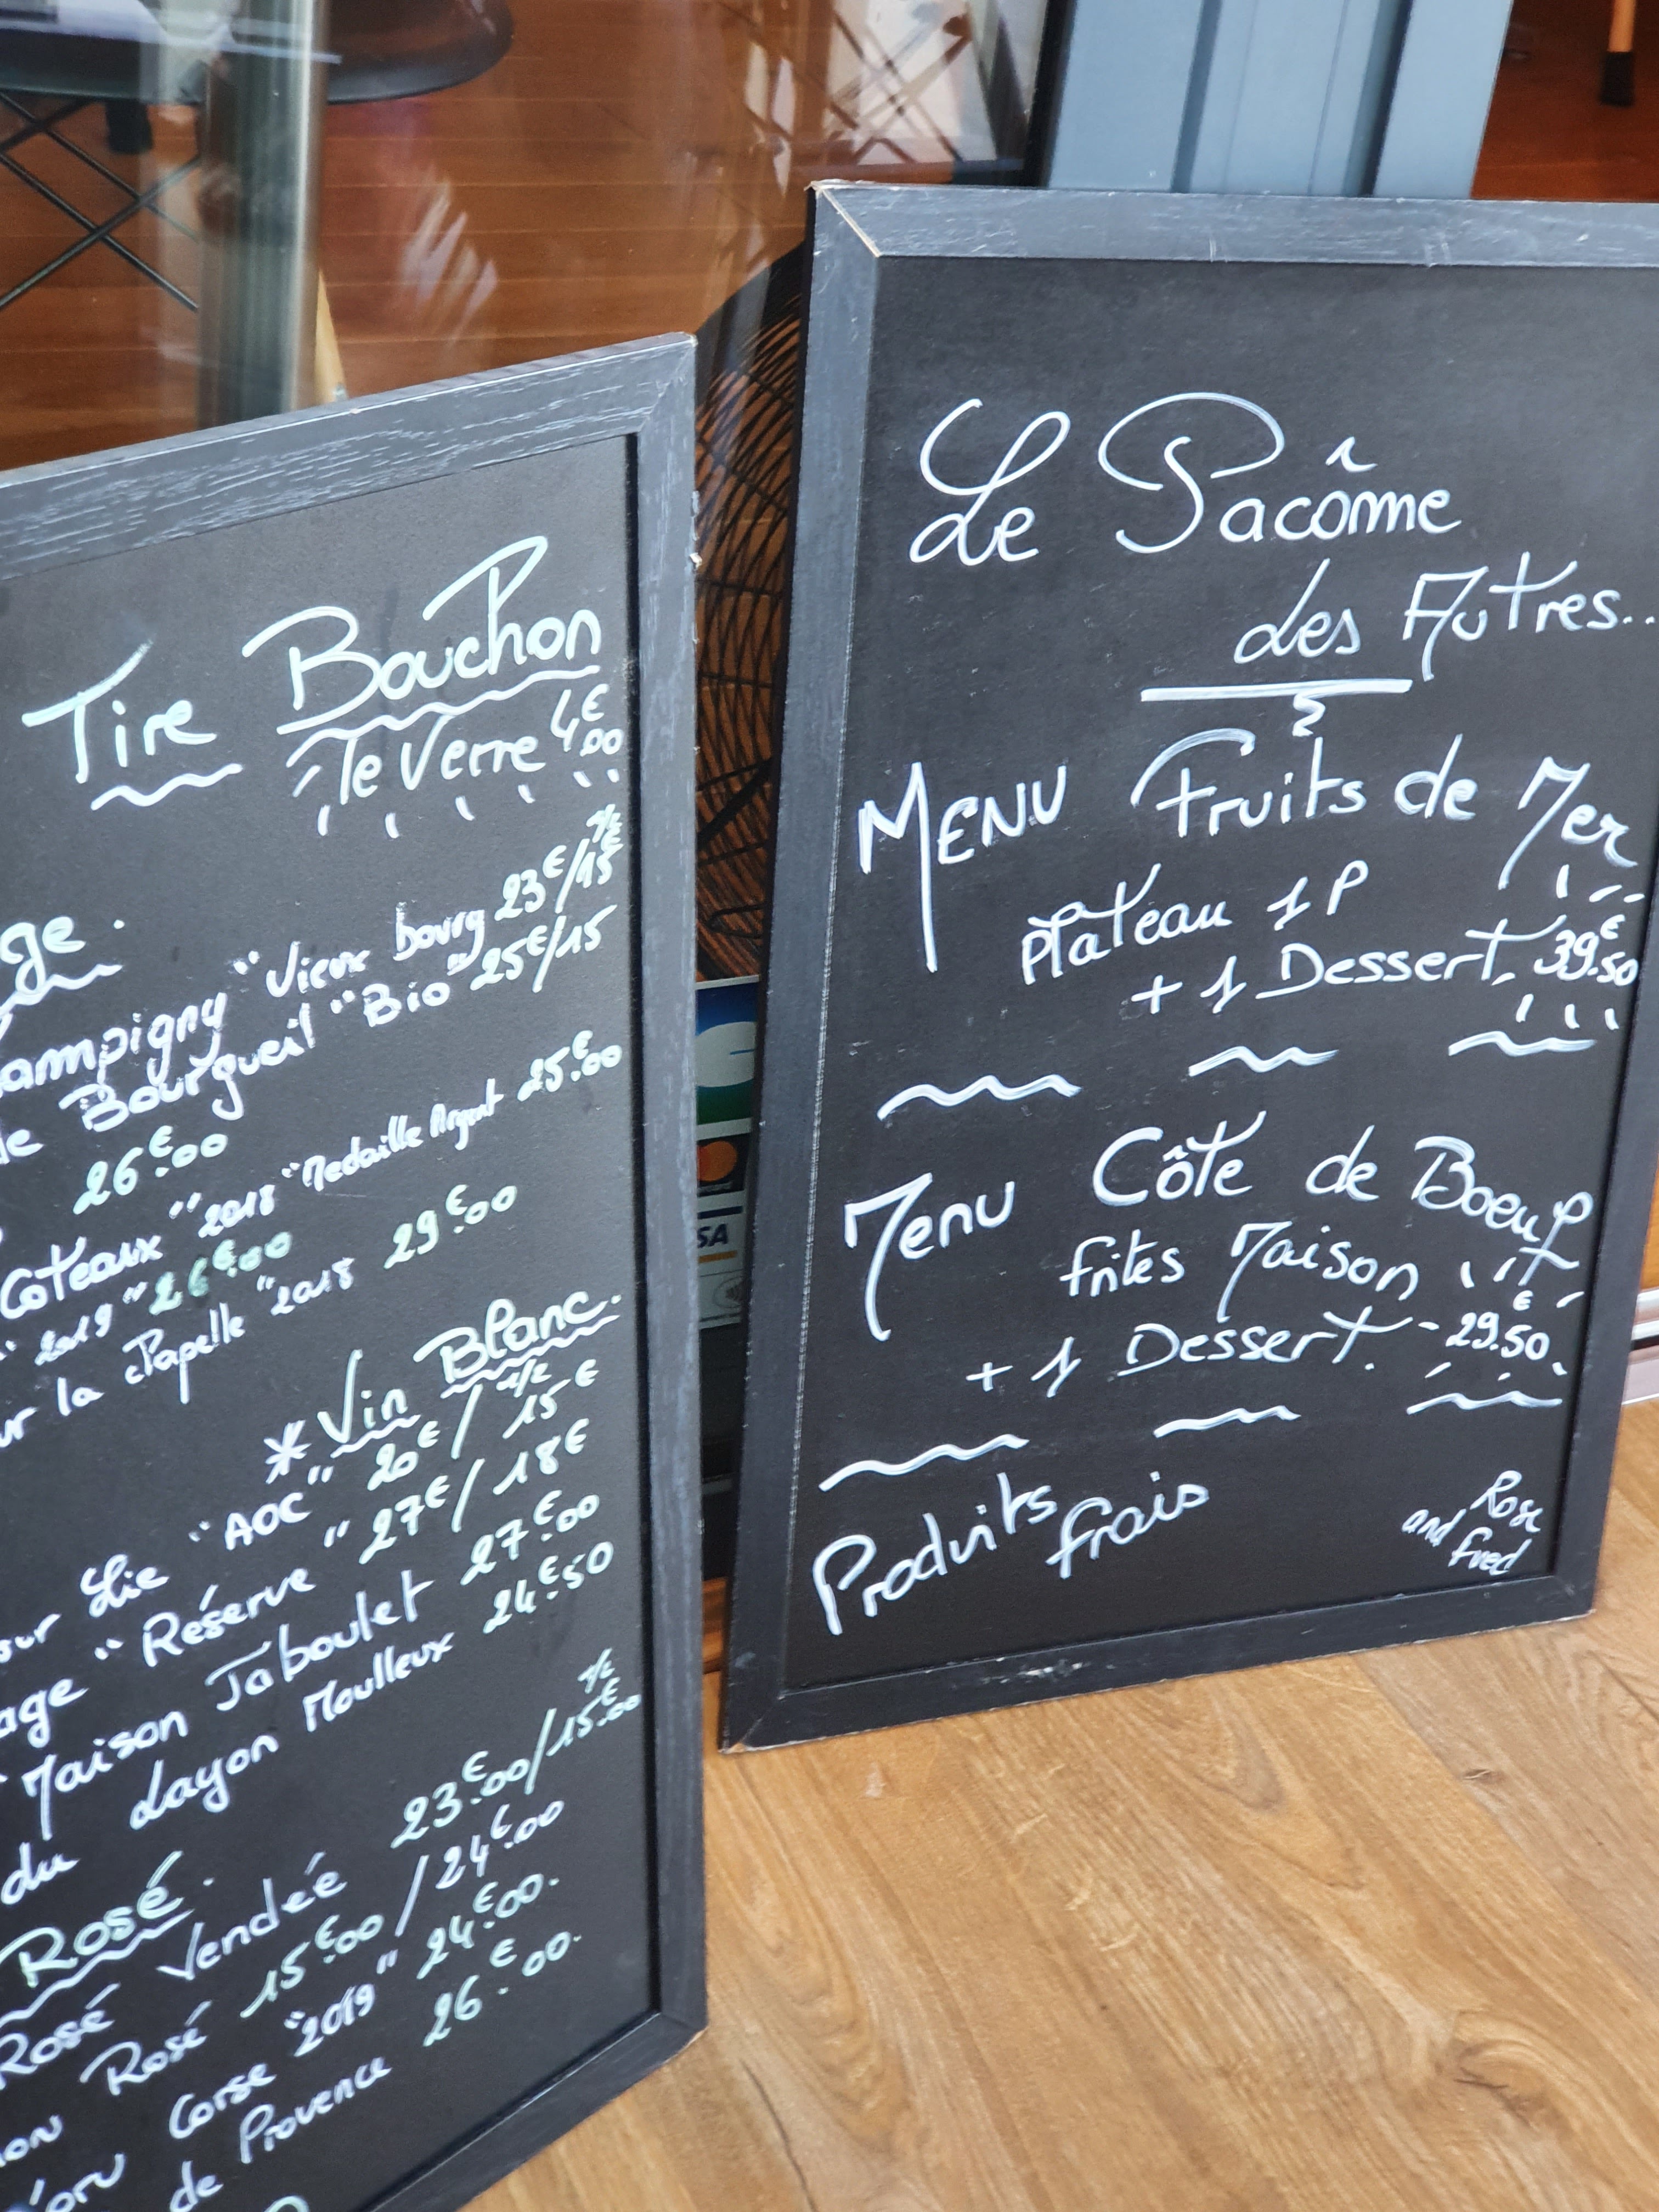 Tire Bouchon
le Verre 4€00
ge.
ampigny "Vieux bourg 23€/15€ 1/2
de Bourgueil "Bio" 25€/15
26€.00
Côteaux "2018 "Medaille Argent 25€.00
"2019" 26€.00
ur la Chapelle "2018 29€.00
* Vin Blanc.
sur Lie "AOC" 20€/15€ 1/2
age "Réserve" 27€/18€
"Maison Jaboulet 27€.00
du Layon Moulleux 24€.50
Rosé.
Rosé Vendéé 23€.00/15€.00 1/2
Rosé 15€.00/24€.00
Corse "2019" 24€.00.
de Provence 26€.00.
Le Pacôme
des Autres..
MENU Fruits de Mer
Plateau 1P
+ 1 Dessert. 39€.50
Menu Côte de Boeuf
frites Maison
+ 1 Dessert. - 29€.50.
Produits frais
Rose
and fred
SA